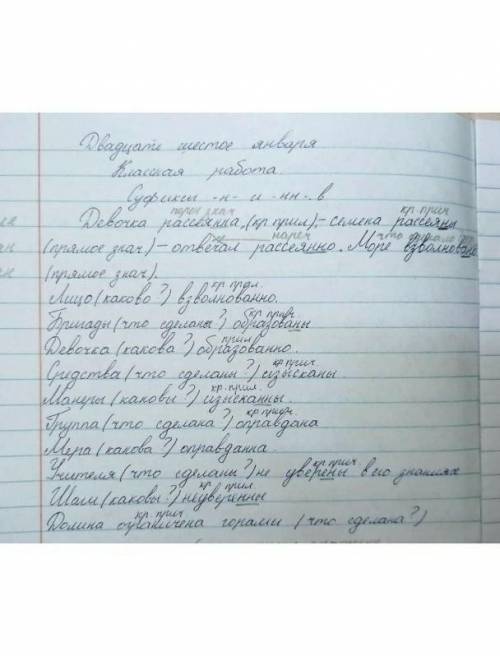 Двадцать шестое января
Классная работа
Суффиксы -н- и -нн- в
перен знач кр. прич
Девочка рассеянна, (кр прил) - семена рассеяны
нареч что делало
(прямое знач) - отвечал рассеянно. Море взволновано
(прямое знач).
кр. прил.
Лицо (каково?) взволнованно.
кр прич.
Бригады (что сделаны?) образованы
прил
Девочка (какова?) образованно.
кр прич
Средства (что сделаны?) изысканы
кр. прил.
Манеры (каковы?) изысканны.
кр. прич.
Группа (что сделана?) оправдана
Мера (какова?) оправданна.
кр прич.
Учителя (что сделаны?) не уверены в его знаниях
кр прил.
Шаги (каковы?) неуверенны
кр. прич
Долина ограничена горами (что сделана?)